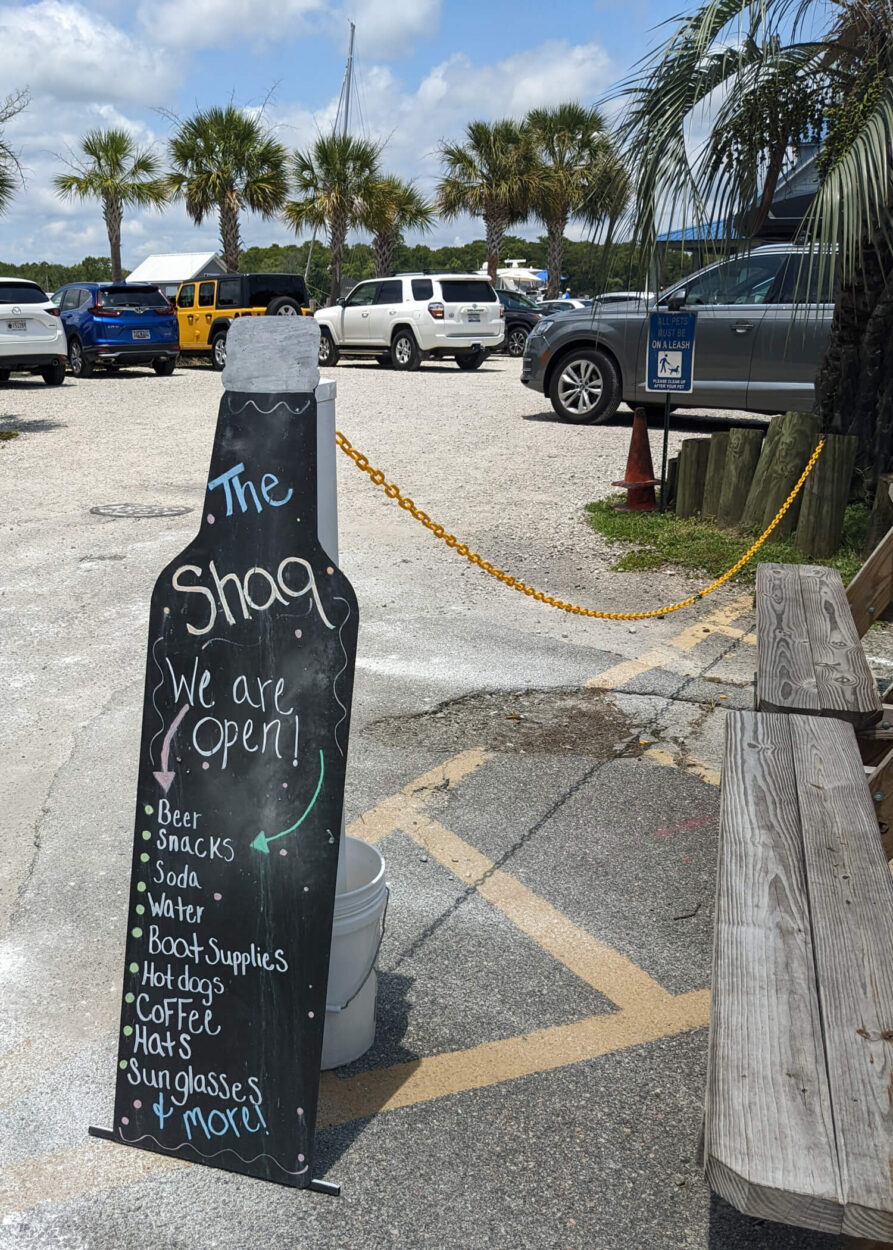 The
Shaq
We are
open!
Beer
Snacks
Soda
Water
Boat Supplies
Hotdogs
Coffee
Hats
Sunglasses
& more!
ALL PETS
MUST BE
ON A LEASH
PLEASE CLEAN UP
AFTER YOUR PET